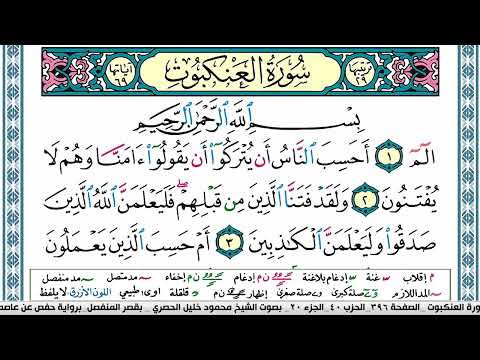 آياتها ٦٩ سُورَةُ الْعَنكَبُوتِ ترتيبها ٢٩
بِسْمِ ٱللَّهِ ٱلرَّحْمَٰنِ ٱلرَّحِيمِ
الٓمٓ ١ أَحَسِبَ ٱلنَّاسُ أَن يُتْرَكُوٓا۟ أَن يَقُولُوٓا۟ ءَامَنَّا وَهُمْ لَا
يُفْتَنُونَ ٢ وَلَقَدْ فَتَنَّا ٱلَّذِينَ مِن قَبْلِهِمْ ۖ فَلَيَعْلَمَنَّ ٱللَّهُ ٱلَّذِينَ
صَدَقُوا۟ وَلَيَعْلَمَنَّ ٱلْكَٰذِبِينَ ٣ أَمْ حَسِبَ ٱلَّذِينَ يَعْمَلُونَ
م إقلاب غنة إدغام بلاغنة ن م إدغام إخفاء مد متصل مد منفصل
المد اللازم صلة كبرى صلة صغرى إظهار ن م قلقلة طبيعي اللون الأزرق لا يلفظ
ورة العنكبوت الصفحة ٣٩٦ الجزء ٢٠ بصوت الشيخ محمود خليل الحصري بقصر المنفصل برواية حفص عن عاصم